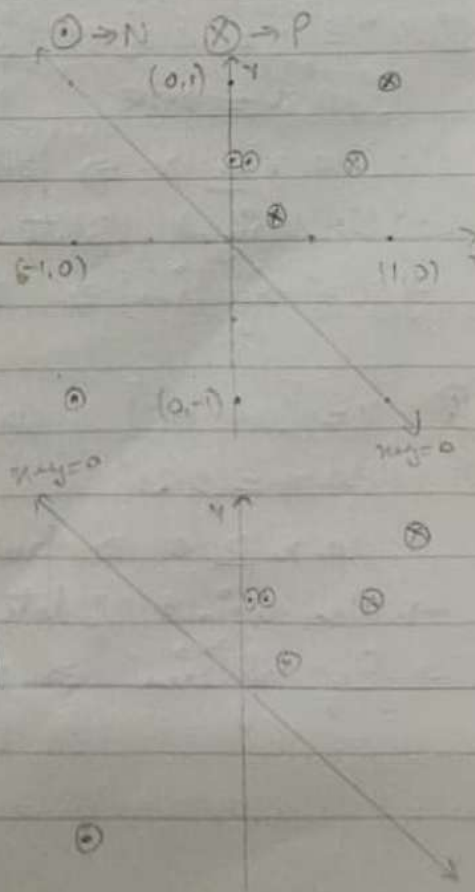 ⊙ → N ⊗ → P
(0,1) y
(-1,0) (1,0)
(0,-1)
x+y=0
x+y=0
y